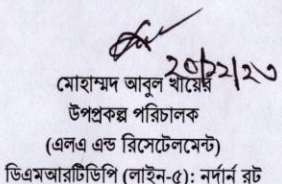 ২০/১২/২৩
মোহাম্মদ আবুল খায়ের
উপপ্রকল্প পরিচালক
(এলএ এন্ড রিসেটেলমেন্ট)
ডিএমআরটিডিপি (লাইন-৫): নর্দার্ন রুট